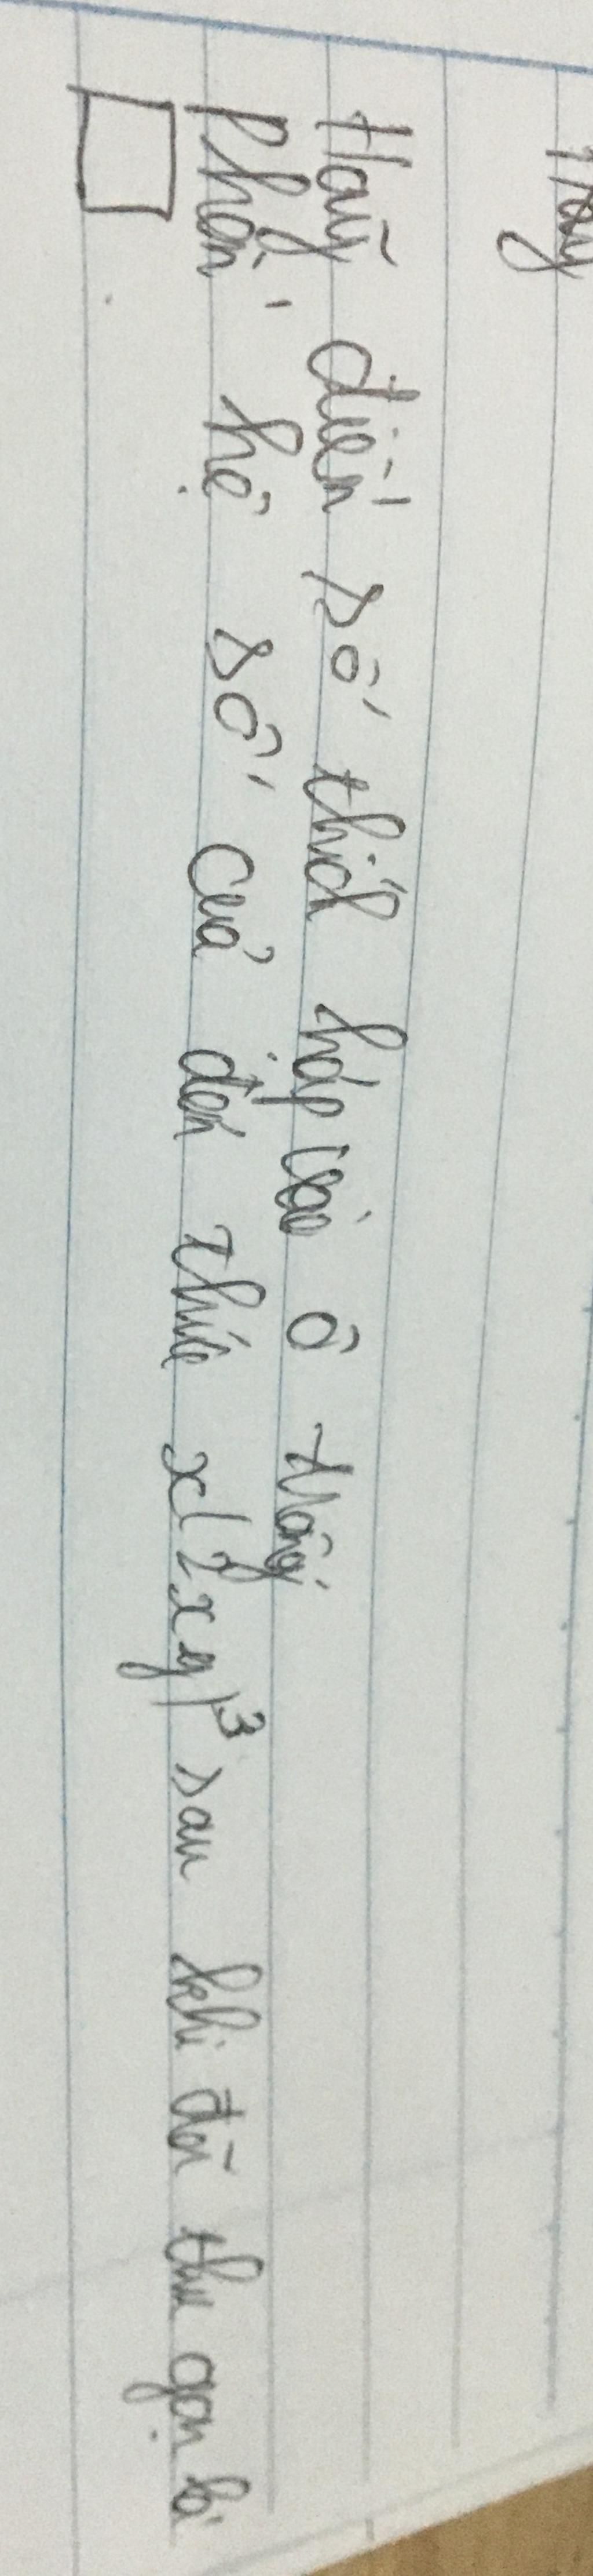 Hãy điền số thích hợp vào ô trống
Phần hệ số của đơn thức x(2xy)³ sau khi đã thu gọn là